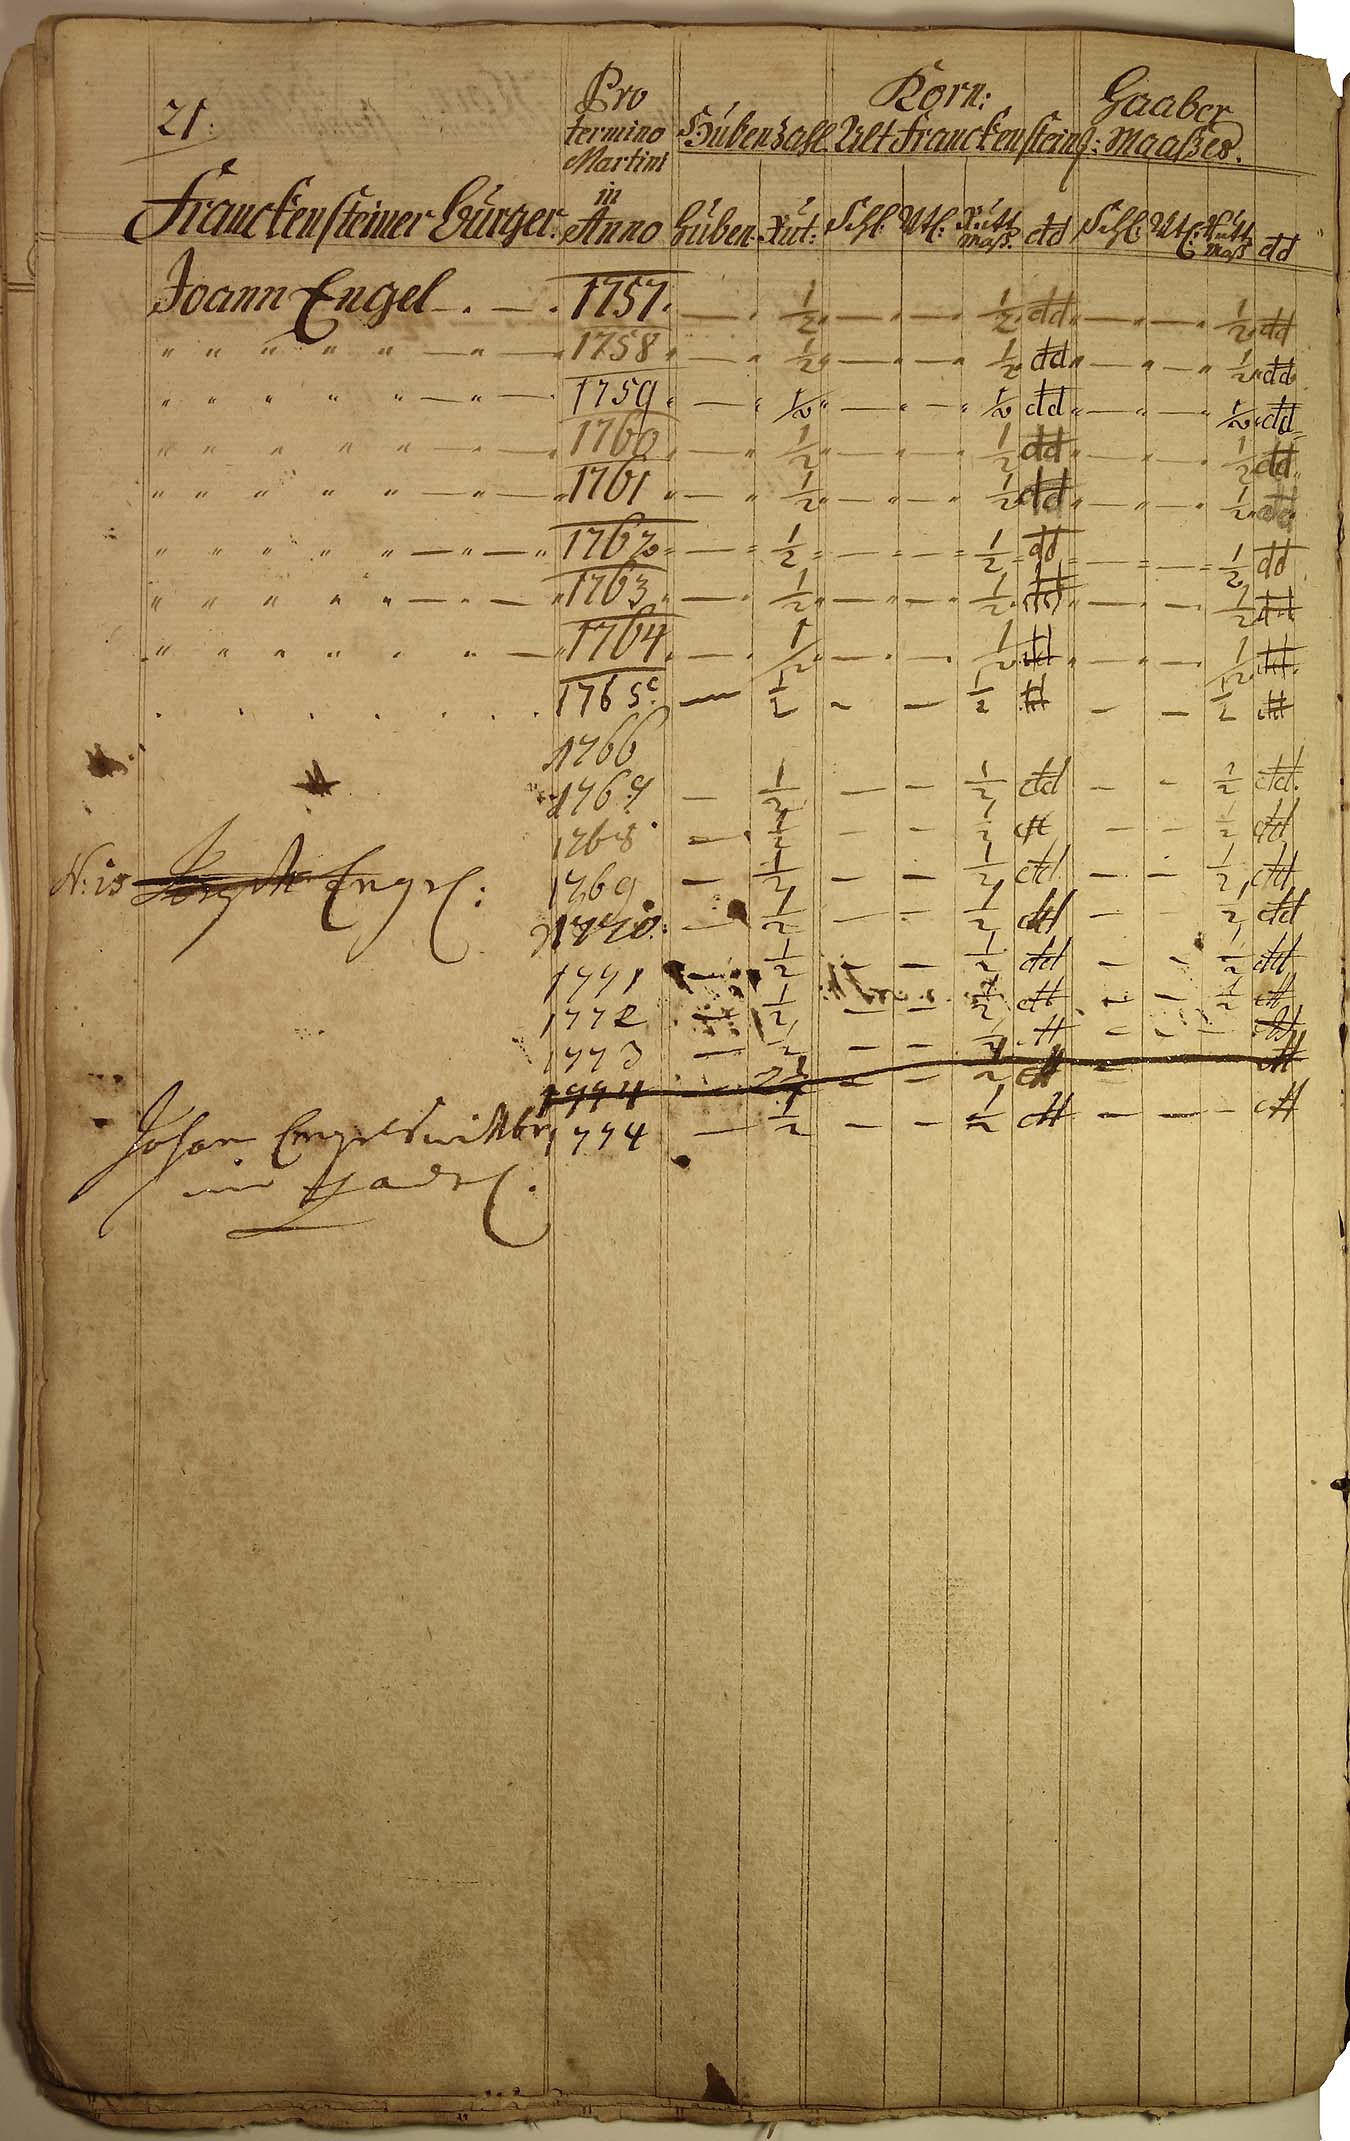 21.
Pro termino Martini in Anno
Korn: Gaaber
Hŭben Zahl. Alt Franckensteing: Maaßes.
Franckensteiner Bürger. Hŭben. Rŭt: Schl: Vtl: Rŭtt Maß. dd Schl: Vtl: Rŭtt Maß dd
Joann Engel . — . 1757. — . ½ . — . — . ½ . dd . — . — . ½ . dd
" " " " " — " — " 1758 " — " ½ " — " — " ½ dd " — " — " ½ " dd
" " " " " — " — " 1759 " — " ½ " — " — " ½ dd " — " — " ½ " dd
" " " " " — " — " 1760 " — " ½ " — " — " ½ dd " — " — " ½ dd
" " " " " — " — " 1761 " — " ½ " — " — " ½ dd " — " — " ½ " dd
" " " " " — " — " 1762 " — " ½ " — " — " ½ " dd " — " — " ½ dd
" " " " " — " — " 1763 " — " ½ " — " — " ½ dd " — " — " ½ dd
" " " " " " — " 1764 " — " ½ " — " — " ½ dd " — " — " ½ dd
" " " " " " " 1765 — ½ — — ½ dd — — ½ dd
1766
1767 — ½ — — ½ dd — — ½ dd
1768 — ½ — — ½ dd — — ½ dd
N: 10 Joseph Engel: 1769 — ½ — — ½ dd — — ½ dd
1770 — ½ — — ½ dd — — ½ dd
1771 — ½ — — ½ dd — — ½ dd
1772 — ½ — — ½ dd — — ½ dd
1773 — ½ — — ½ dd — — — dd
1774 — ½ — — ½ dd — dd
Johan Engels wittbe 1774 — ½ — — ½ dd — — — dd